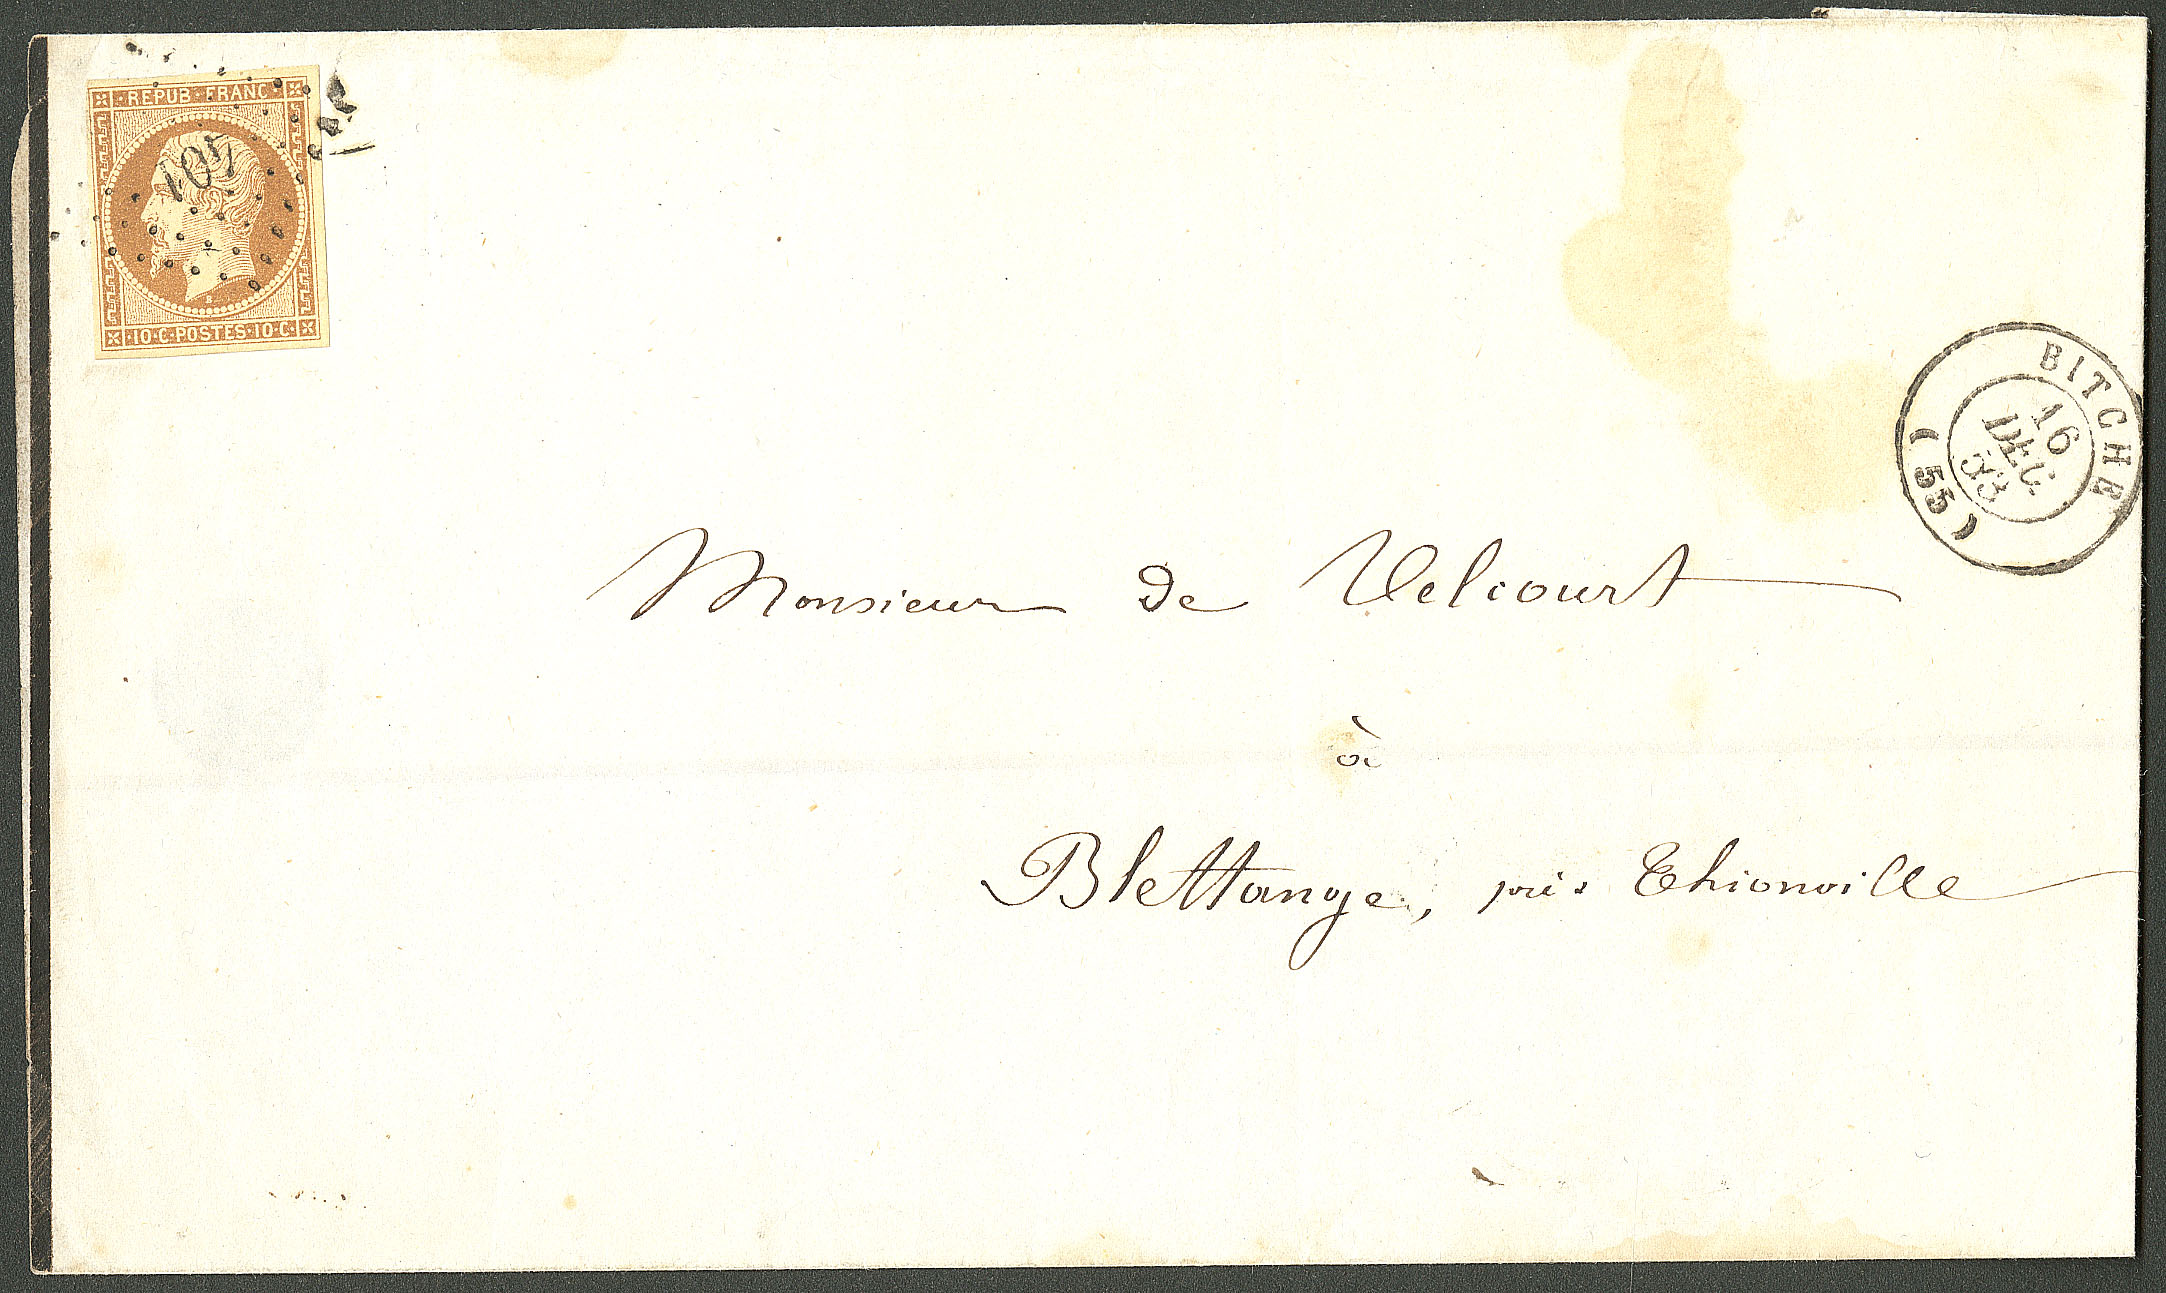 REPUB·FRANC·
401
10·C·POSTES·10·C·
BITCHE
16
DEC.
53
(55)
Monsieur de Velcourt
à
Blettange, près Thionville